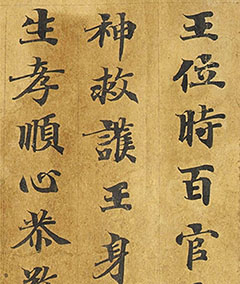 王位時百官
神救護王身
生孝順心恭敬